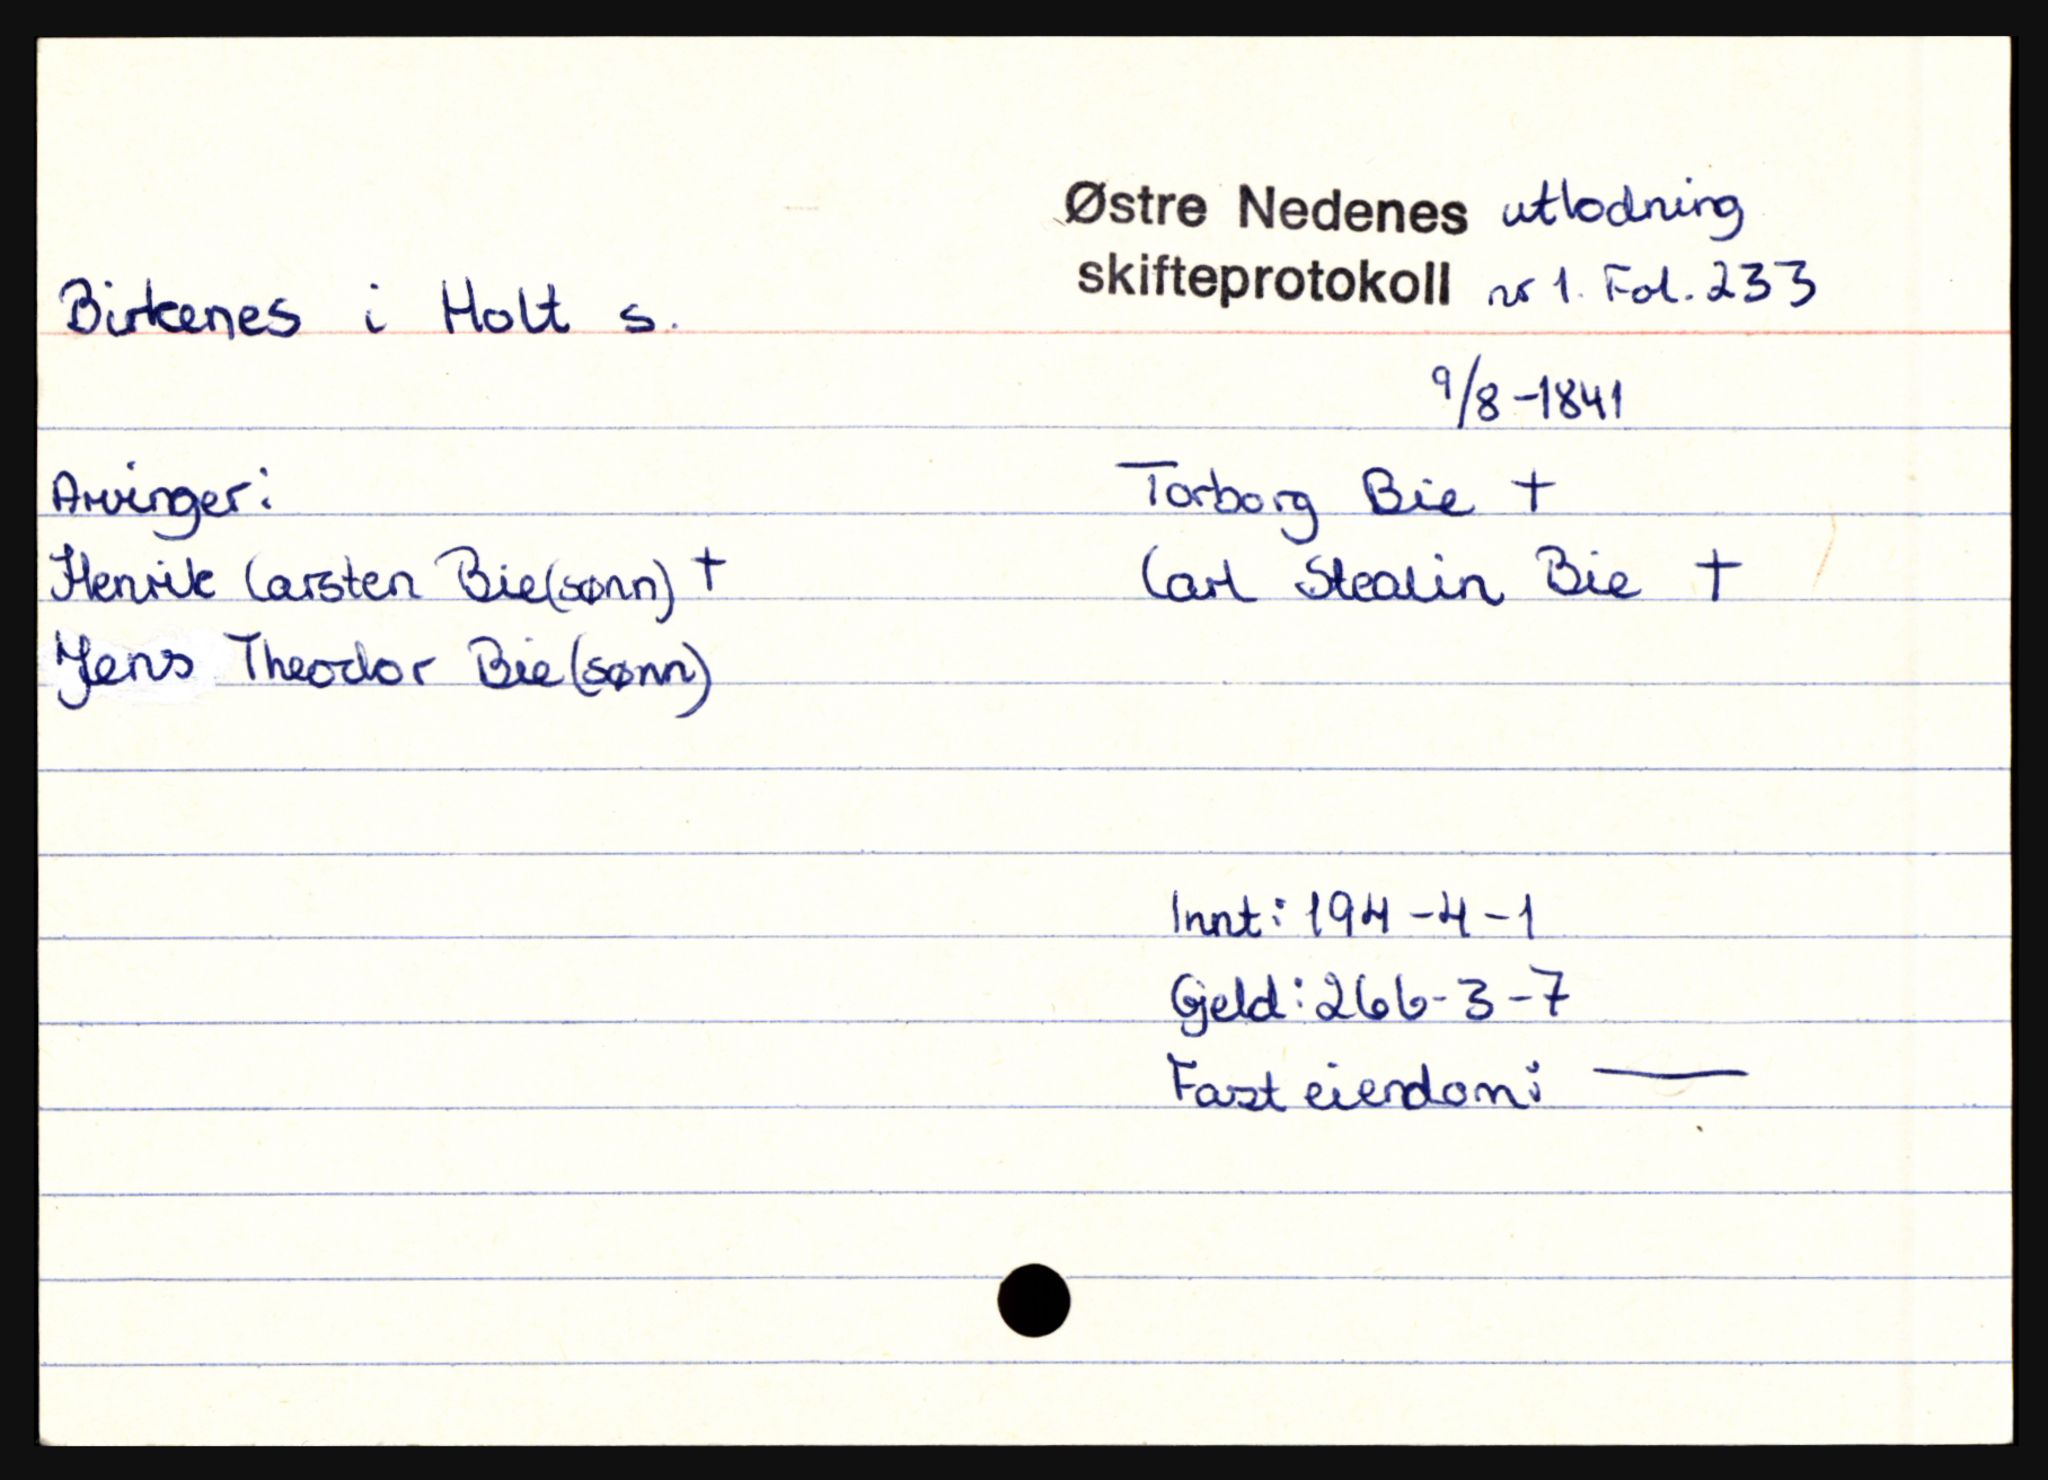 Østre Nedenes utlodning
skifteprotokoll nr 1. Fol. 233
Birkenes i Holt s.
9/8-1841
Arvinger:
Torborg Bie †
Henrik Carsten Bie(sønn) †
Carl Stealin Bie †
Jens Theodor Bie(sønn)
Innt: 194-4-1
Gjeld: 266-3-7
Fast eiendom: —